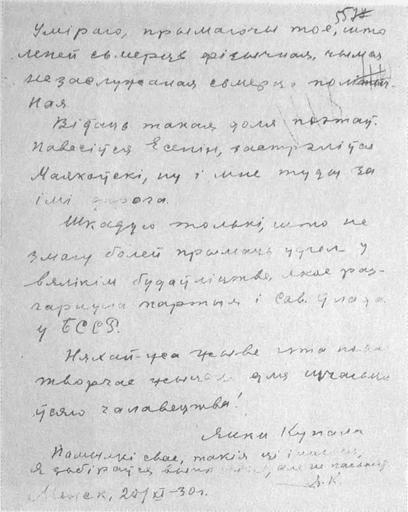 557
Уміраю, прымаючы тое, што
лепей сьмерць фізычная, чымся
незаслужаная сьмерць політыч-
ная.
Відаць такая доля поэтаў.
Павесіўся Есенін, застрэліўся
Маякоўскі, ну і мне туды за
імі дарога.
Шкадую толькі, што не
змагу болей прымаць удзел у
вялікім будаўніцтве, якое раз-
гарнула партыя і Сав. Улада
у БССР.
Няхай-жа жыве гэта новае
творчае жыцьцё для шчасьця
ўсяго чалавецтва!
Янка Купала
Памылкі свае, такія ці
я зьбіраўся не пасьпеў
Я. К.
Менск, 20/XI-30 г.